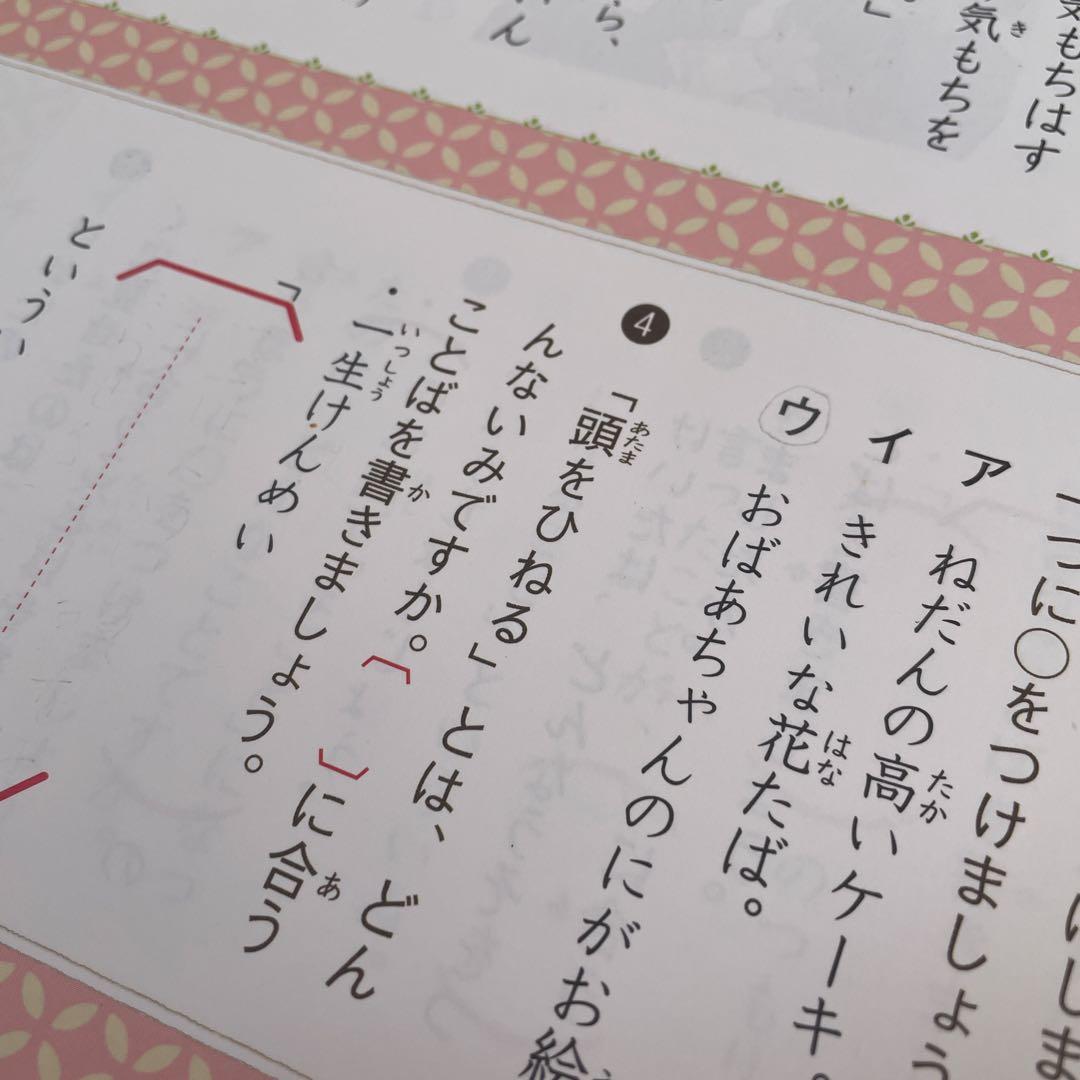 気もちはす
気もちを
一つに○をつけましょう
ア ねだんの高いケーキ。
イ きれいな花たば。
ウ おばあちゃんのにがお絵
④ 「頭をひねる」とは、どん
んないみですか。〔 〕に合う
ことばを書きましょう。
・一生けんめい
「
という